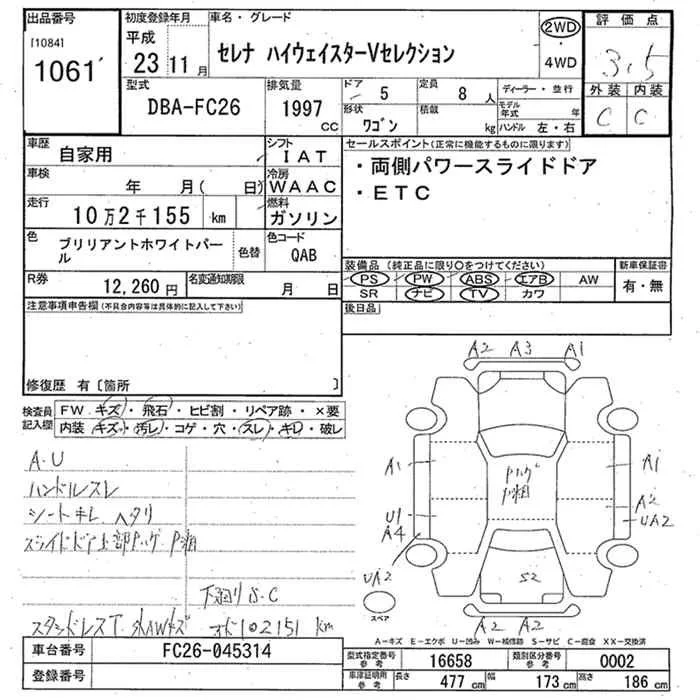 出品番号
[1084]
1061'
初度登録年月
平成
23 11月
車名・グレード
セレナ ハイウェイスターVセレクション
2WD
・
4WD
評価点
3.5
外装 内装
C C
型式
DBA-FC26
排気量
1997
cc
ドア
5
定員
8 人
形状
ワゴン
積載
kg
ディーラー・並行
モデル年式 年
ハンドル 左・右
車歴
自家用
シフト
IAT
車検
年 月( 日)
冷房
WAAC
走行
10万2千155 km
燃料
ガソリン
色
ブリリアントホワイトパール
色替
色コード
QAB
セールスポイント(正常に機能するものに限ります)
・両側パワースライドドア
・ETC
装備品(純正品に限り○をつけてください)
PS PW ABS エアB AW
SR ナビ TV カワ
新車保証書
有・無
R券
12,260円
名変通知期限
月 日
後日品
注意事項申告欄(不具合内容等は具体的に記入して下さい)
修復歴 有〔箇所 〕
検査員
記入欄
FW キズ・飛石・ヒビ割・リペア跡・×要
内装 キズ・汚レ・コゲ・穴・スレ・キレ・破レ
A.U
ハンドルスレ
シートキレ ヘタリ
スライドドア上部Pハゲ P粗
下廻りS.C
スタッドレスT. 外AWキズ オド102151 km
A2 A3 A1
A1
Pハゲ
P粗
A1
A2
UA2
U1
A4
UA2
S2
スペア
A2 A2
A−キズ E−エクボ U−凹み W−補修跡 S−サビ C−腐食 XX−交換済
車台番号
FC26-045314
登録番号
型式指定番号
参考
16658
類別区分番号
参考
0002
車庫証明用
参考
長さ
477 cm
幅
173 cm
高さ
186 cm